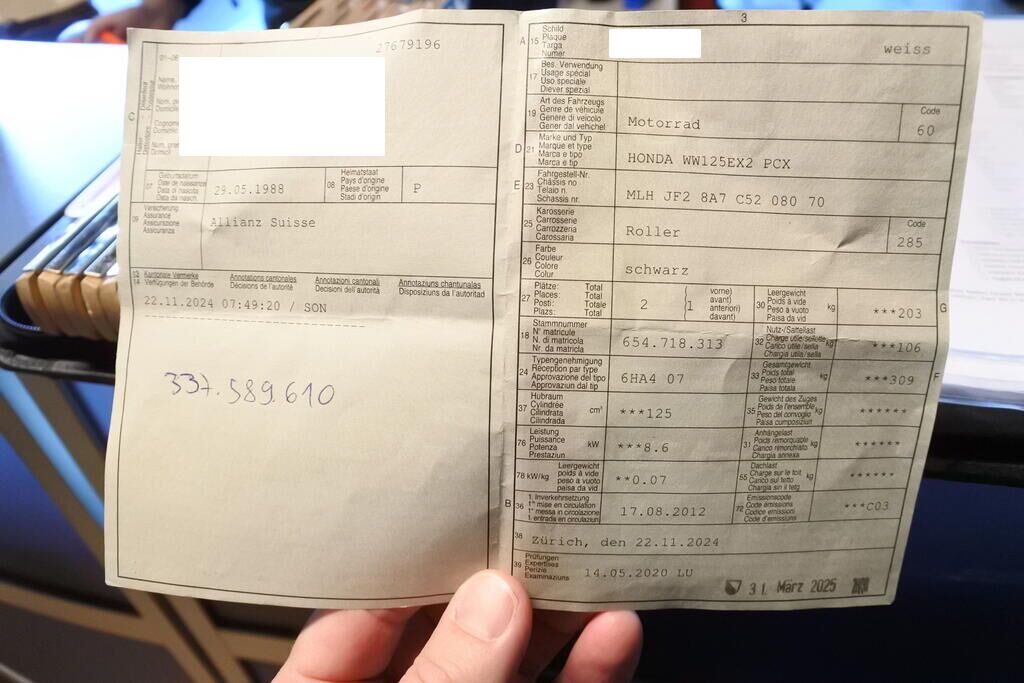 3
27679196
01-06
Name,
Wohnor
Nom, pr
Domicile
Cognome
Domicilio
Nom, pren
Domicil
C
Halter
Détenteur
Detentore
07
Geburtsdatum
Date de naissance
Data di nascita
Data da nasch.
29.05.1988
08
Heimatstaat
Pays d'origine
Paese d'origine
Stadi d'origin
P
09
Versicherung
Assurance
Assicurazione
Assicuranza
Allianz Suisse
13
14
Kantonale Vermerke
Verfügungen der Behörde
Annotations cantonales
Décisions de l'autorité
Annotazioni cantonali
Decisioni dell'autorità
Annotaziuns chantunalas
Disposiziuns da l'autoritad
22.11.2024 07:49:20 / SON
337.589.610
A
15
Schild
Plaque
Targa
Numer
weiss
17
Bes. Verwendung
Usage spécial
Uso speciale
Diever spezial
19
Art des Fahrzeugs
Genre de véhicule
Genere di veicolo
Gener dal vehichel
Motorrad
Code
60
D
21
Marke und Typ
Marque et type
Marca e tipo
Marca e tip
HONDA WW125EX2 PCX
E
23
Fahrgestell-Nr.
Châssis no
Telaio n.
Schassis nr.
MLH JF2 8A7 C52 080 70
25
Karosserie
Carrosserie
Carrozzeria
Carossaria
Roller
Code
285
26
Farbe
Couleur
Colore
Colur
schwarz
27
Plätze: Total
Places: Total
Posti: Totale
Plazs: Total
2
(1
vorne)
avant)
anteriori)
davant)
30
Leergewicht
Poids à vide
Peso a vuoto
Paisa da vid
kg
***203
G
18
Stammnummer
N° matricule
N. di matricola
Nr. da matricla
654.718.313
32
Nutz-/Sattellast
Charge utile/sellette
Carico utile/sella
Chargia utila/sella
kg
***106
24
Typengenehmigung
Réception par type
Approvazione del tipo
Approvaziun dal tip
6HA4 07
33
Gesamtgewicht
Poids total
Peso totale
Paisa totala
kg
***309
F
37
Hubraum
Cylindrée
Cilindrata
Cilindrada
cm³
***125
35
Gewicht des Zuges
Poids de l'ensemble
Peso del convoglio
Paisa cumposiziun
kg
******
76
Leistung
Puissance
Potenza
Prestaziun
kW
***8.6
31
Anhängelast
Poids remorquable
Carico rimorchiato
Chargia annexa
kg
******
78
kW/kg
Leergewicht
poids à vide
peso a vuoto
paisa da vid
**0.07
55
Dachlast
Charge sur le toit
Carico sul tetto
Chargia sin il tetg
kg
******
B
36
1. Inverkehrsetzung
1re mise en circulation
1a messa in circolazione
1. entrada en circulaziun
17.08.2012
72
Emissionscode
Code émissions
Codice emissioni
Code d'emissiuns
***C03
38
Zürich, den 22.11.2024
39
Prüfungen
Expertises
Perizie
Examinaziuns
14.05.2020 LU
31. März 2025